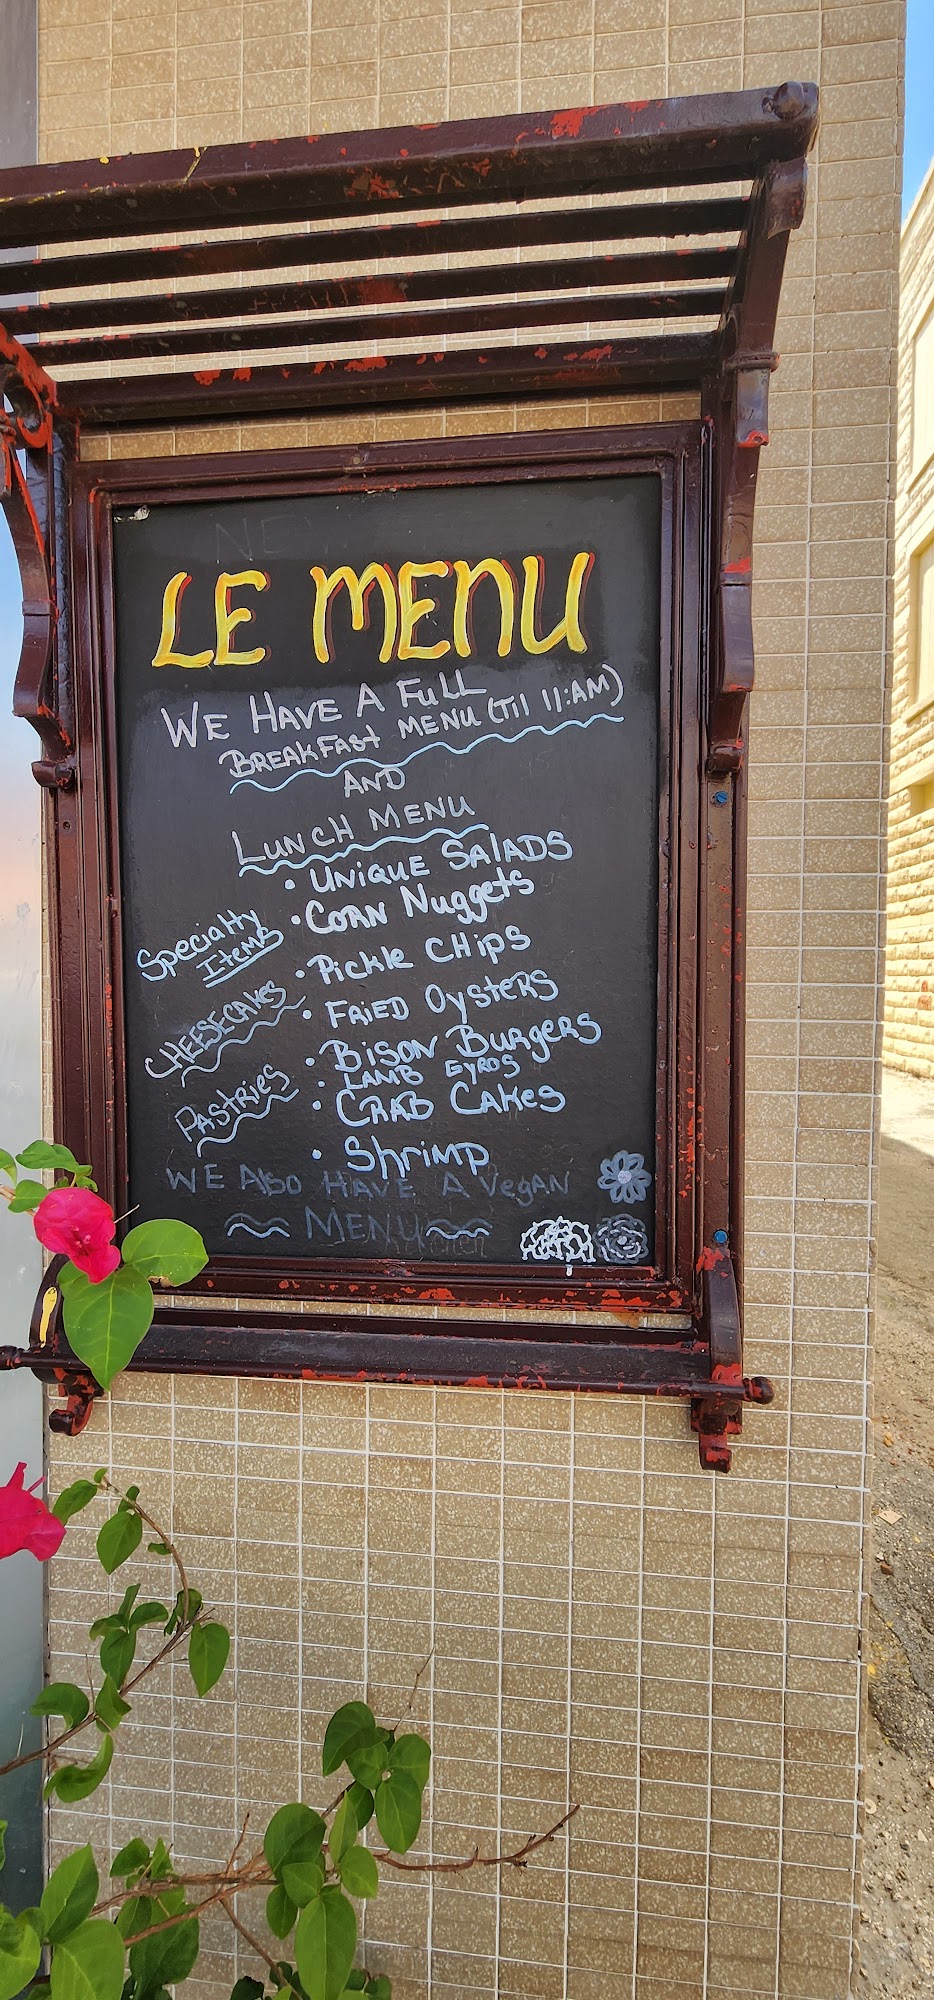 LE MENU
WE HAVE A FULL
BREAKFAST MENU (TIl 11:AM)
AND
LUNCH MENU
• UNIQUE SALADS
• CORN Nuggets
Specialty
Items
• Pickle CHips
CHEESECAKES
• FRIED OysteRS
• BISON BURgeRS
PASTRies
• LAMB GYROS
• CRAB CAKes
• Shrimp
WE AlSO HAVE A VegAN
MENU